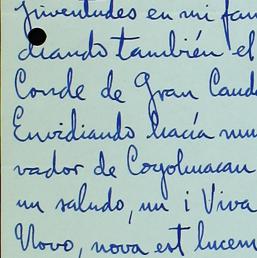 juventudes en mi fam
diando también el
Conde de Gran Caud
Envidiando hacía mu
vador de Coyolhuacan
un saludo, un ¡Viva
Novo, nova est lucem